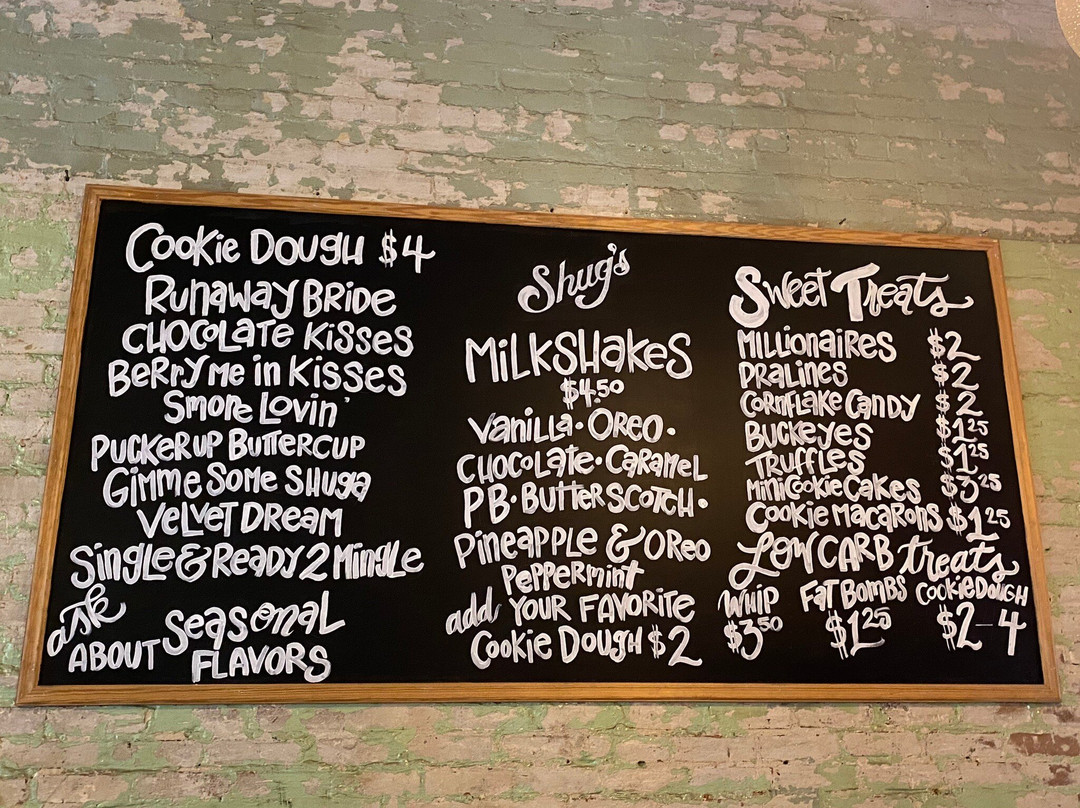 Cookie Dough $4
Runaway Bride
Chocolate Kisses
Berry me in Kisses
Smore Lovin'
Puckerup Buttercup
Gimme Some Shuga
Velvet Dream
Single & Ready 2 Mingle
ask
About Seasonal
Flavors
Shug's
Milkshakes
$4.50
Vanilla · Oreo ·
Chocolate · Caramel
PB · Butterscotch ·
Pineapple & Oreo
Peppermint
add Your Favorite
Cookie Dough $2
Sweet Treats
Millionaires $2
Pralines $2
Cornflake Candy $2
Buckeyes $1.25
Truffles $1.25
Mini Cookie Cakes $3.25
Cookie Macarons $1.25
Low Carb treats
Whip Fat Bombs Cookie Dough
$3.50 $1.25 $2-4